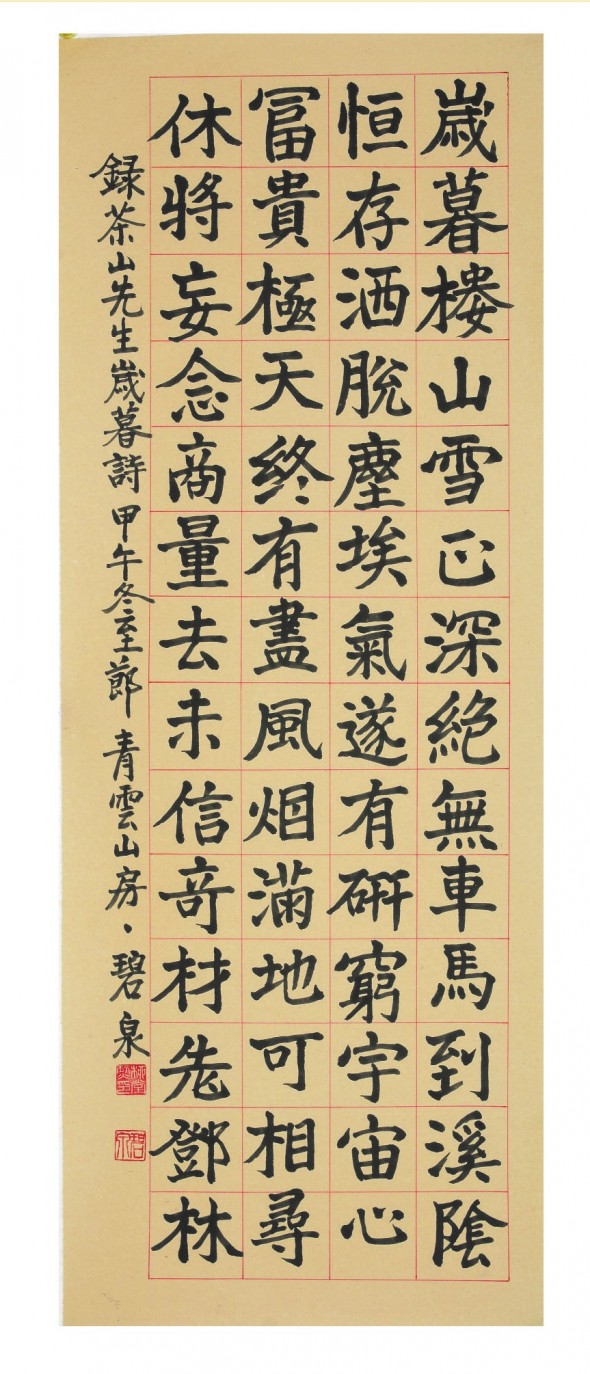 歳暮樓山雪正深絶無車馬到溪陰
恒存洒脫塵埃氣遂有硏窮宇宙心
冨貴極天終有盡風烟滿地可相尋
休將妄念商量去未信竒材先鄧林
録茶山先生歳暮詩 甲午冬至節 青雲山房、碧泉